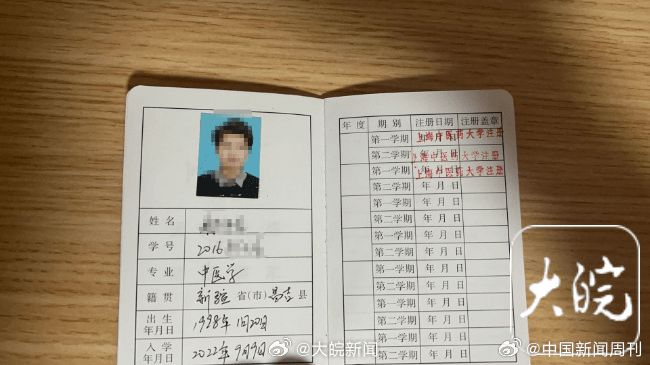 姓名
学号 2016
专业 中医学
籍贯 新疆 省(市) 昌吉 县
出生年月日 1998年1月20日
入学年月日 2022年9月9日
年度 期别 注册日期 注册盖章
第一学期 年月日 上海中医药大学注册
第二学期 年月日 上海中医药大学注册
第一学期 年月日 上海中医药大学注册
第二学期 年月日
第一学期 年月日
第二学期 年月日
第一学期 年月日
第二学期 年月日
第一学期 年月日
第二学期 年月日
第一学期 年月日
第二学期 年月日
大皖
@大皖新闻
@中国新闻周刊